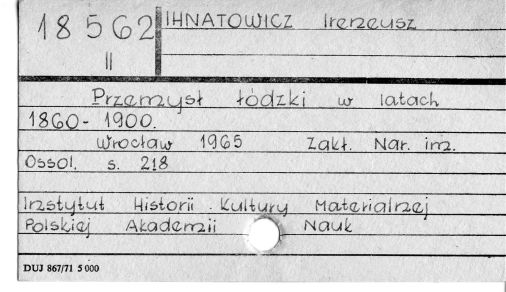 18562
II
IHNATOWICZ Ireneusz
Przemysł łódzki w latach
1860-1900.
Wrocław 1965 Zakł. Nar. im.
Ossol. s. 218
Instytut Historii Kultury Materialnej
Polskiej Akademii Nauk
DUJ 867/71 5 000